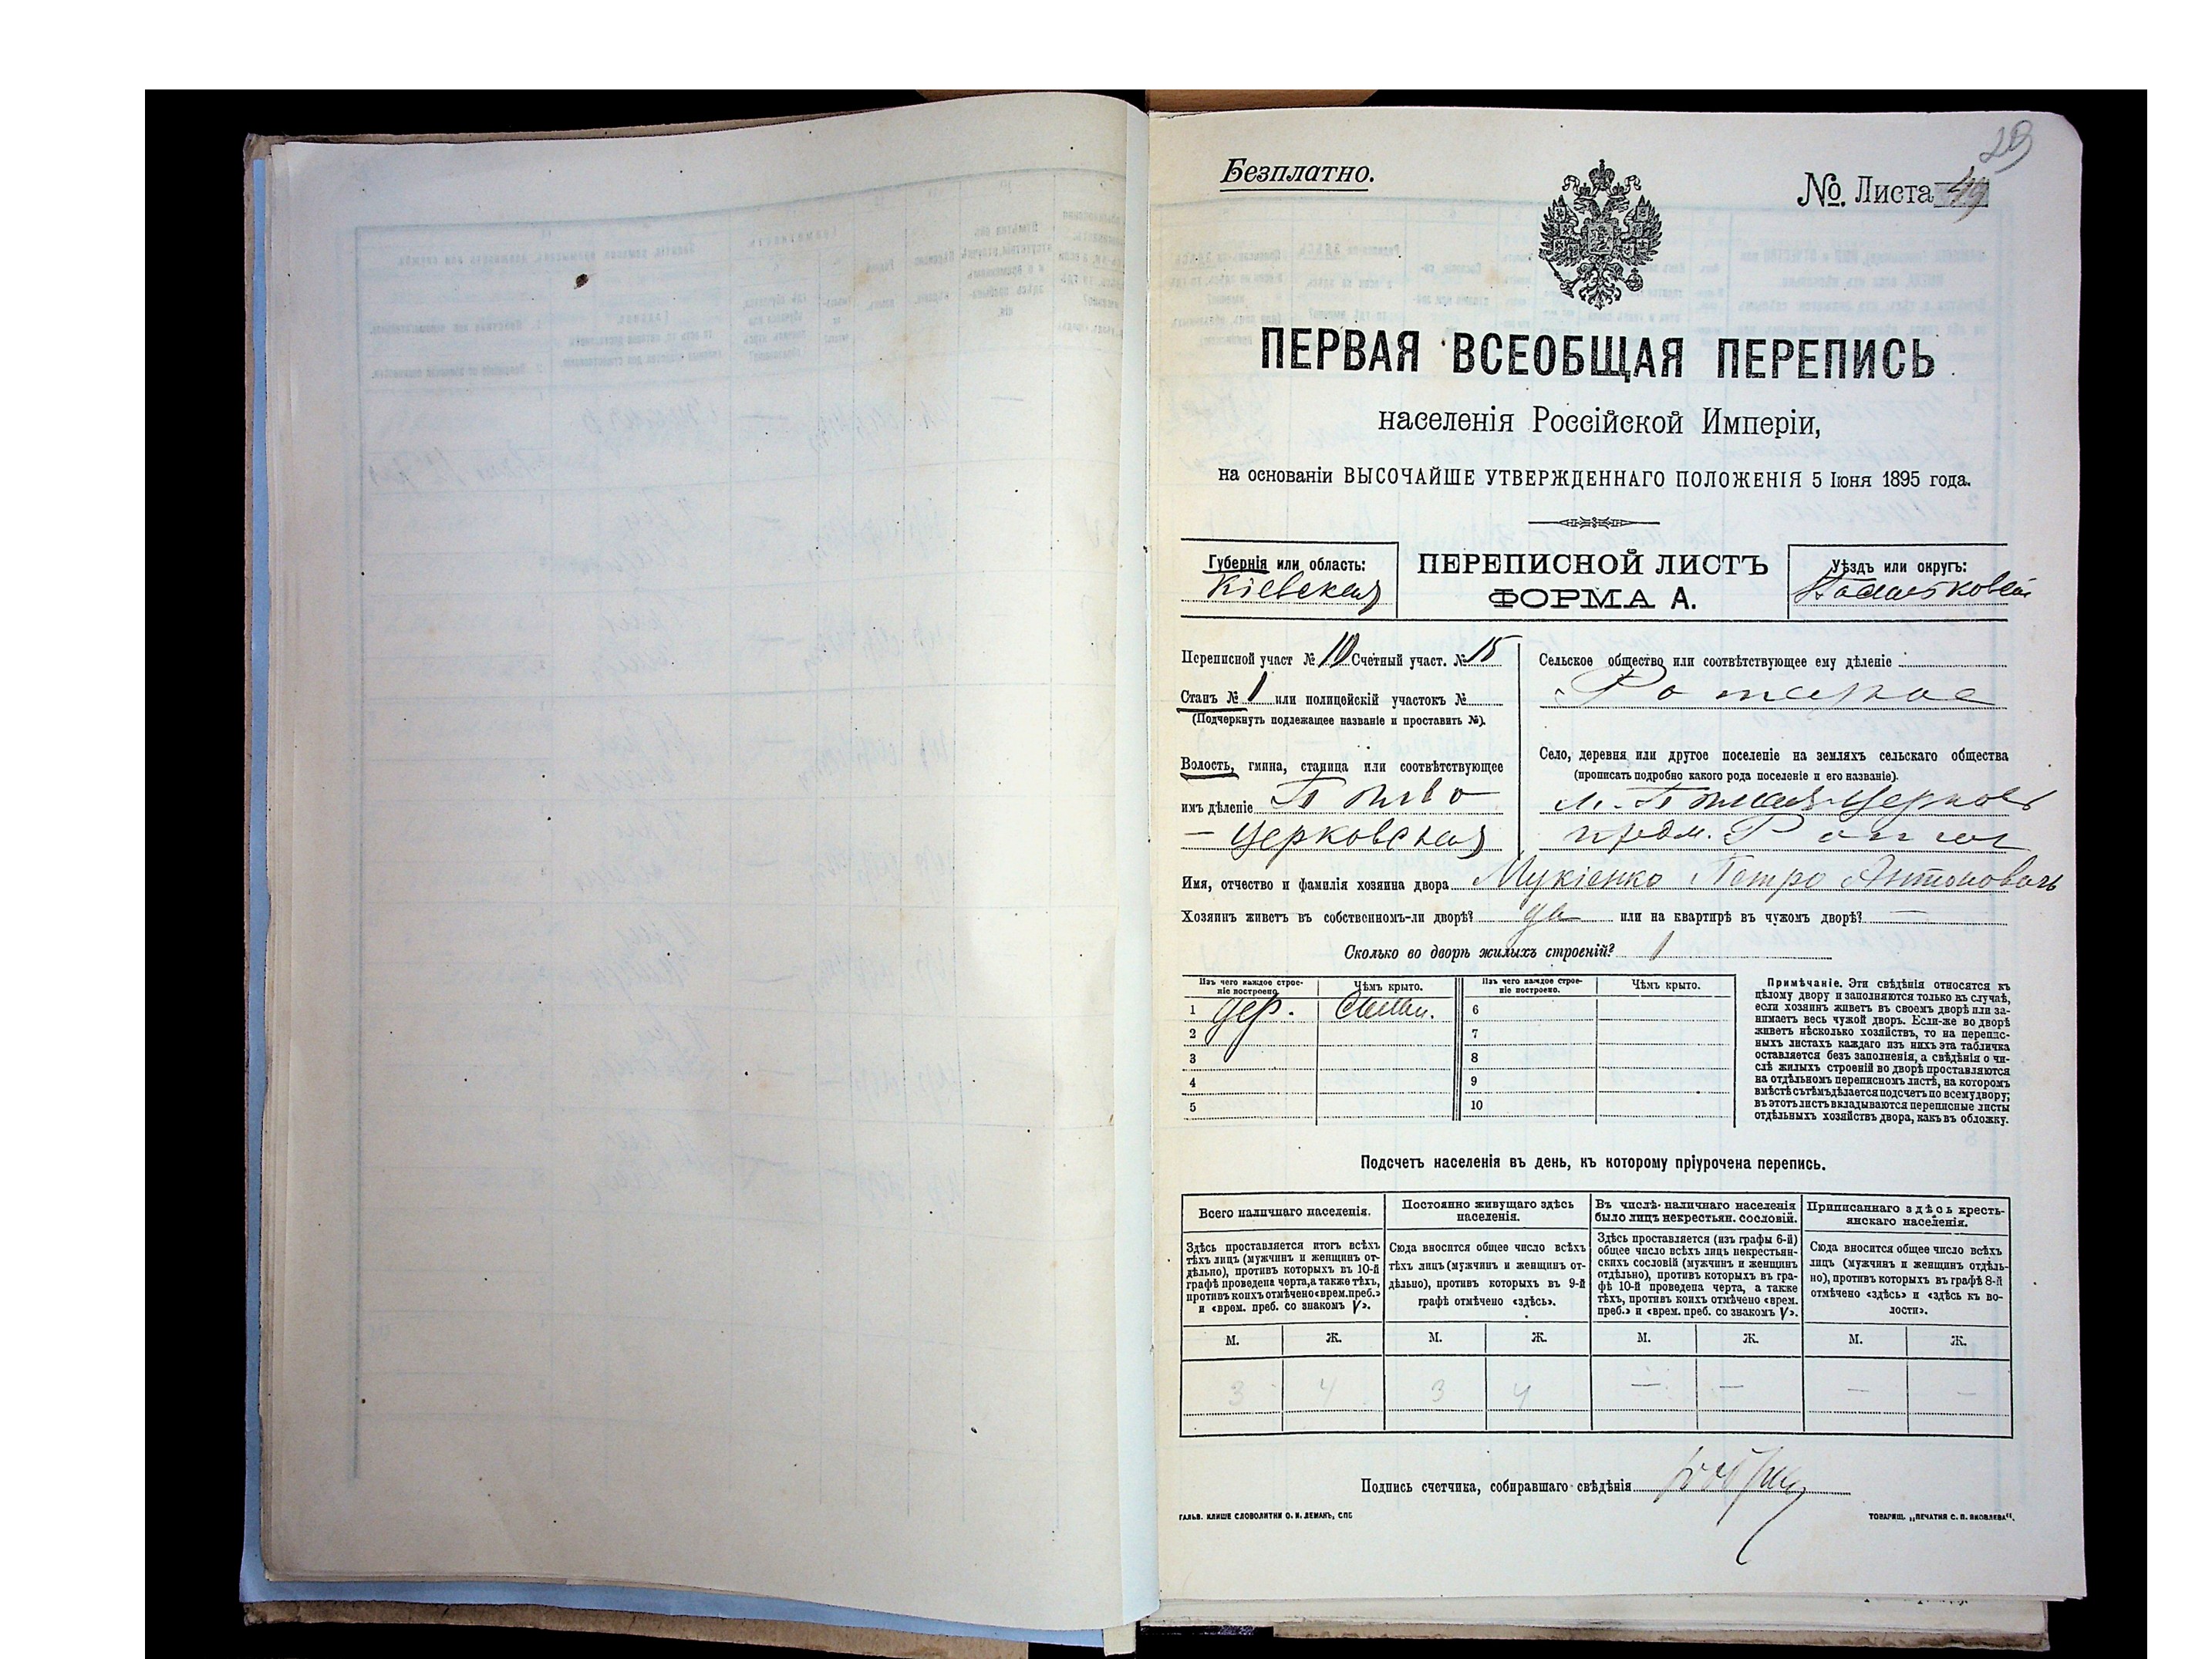 29
Безплатно.
№. Листа 49
ПЕРВАЯ ВСЕОБЩАЯ ПЕРЕПИСЬ
населенія Россійской Имперіи,
на основаніи ВЫСОЧАЙШЕ УТВЕРЖДЕННАГО ПОЛОЖЕНІЯ 5 Іюня 1895 года.
Губернія или область:
Кіевская
ПЕРЕПИСНОЙ ЛИСТЪ
ФОРМА А.
Уѣздъ или округъ:
Переписной участ № 10 Счетный участ. № 15
Станъ № 1 или полицейскій участокъ №
(Подчеркнуть подлежащее названіе и проставить №).
Волость, гмина, станица или соотвѣтствующее
имъ дѣленіе Бѣло
– Церковская
Сельское общество или соотвѣтствующее ему дѣленіе
Село, деревня или другое поселеніе на земляхъ сельскаго общества
(прописать подробно какого рода поселеніе и его названіе).
м. Бѣлая-Церковь
предм.
Имя, отчество и фамилія хозяина двора Мукіенко Петро Антоновичъ
Хозяинъ живетъ въ собственномъ-ли дворѣ? да или на квартирѣ въ чужомъ дворѣ? —
Сколько во дворѣ жилыхъ строеній? 1
Изъ чего каждое строе-
ніе построено.
Чѣмъ крыто.
Изъ чего каждое строе-
ніе построено.
Чѣмъ крыто.
1 дер. солом. 6
2 7
3 8
4 9
5 10
Примѣчаніе. Эти свѣдѣнія относятся къ
цѣлому двору и заполняются только въ случаѣ,
если хозяинъ живетъ въ своемъ дворѣ или за-
нимаетъ весь чужой дворъ. Если-же во дворѣ
живетъ нѣсколько хозяйствъ, то на перепис-
ныхъ листахъ каждаго изъ нихъ эта табличка
оставляется безъ заполненія, а свѣдѣнія о чи-
слѣ жилыхъ строеній во дворѣ проставляются
на отдѣльномъ переписномъ листѣ, на которомъ
вмѣстѣ съ тѣмъ дѣлается подсчетъ по всему двору;
въ этотъ листъ вкладываются переписные листы
отдѣльныхъ хозяйствъ двора, какъ въ обложку.
Подсчетъ населенія въ день, къ которому пріурочена перепись.
Всего наличнаго населенія.
Здѣсь проставляется итогъ всѣхъ
тѣхъ лицъ (мужчинъ и женщинъ от-
дѣльно), противъ которыхъ въ 10-й
графѣ проведена черта, а также тѣхъ,
противъ коихъ отмѣчено «врем. преб.»
и «врем. преб. со знакомъ V».
Постоянно живущаго здѣсь
населенія.
Сюда вносится общее число всѣхъ
тѣхъ лицъ (мужчинъ и женщинъ от-
дѣльно), противъ которыхъ въ 9-й
графѣ отмѣчено «здѣсь».
Въ числѣ наличнаго населенія
было лицъ некрестьян. сословій.
Здѣсь проставляется (изъ графы 6-й)
общее число всѣхъ лицъ некрестьян-
скихъ сословій (мужчинъ и женщинъ
отдѣльно), противъ которыхъ въ гра-
фѣ 10-й проведена черта, а также
тѣхъ, противъ коихъ отмѣчено «врем.
преб.» и «врем. преб. со знакомъ V».
Приписаннаго здѣсь кресть-
янскаго населенія.
Сюда вносится общее число всѣхъ
лицъ (мужчинъ и женщинъ отдѣль-
но), противъ которыхъ въ графѣ 8-й
отмѣчено «здѣсь» и «здѣсь къ во-
лости».
М. Ж. М. Ж. М. Ж. М. Ж.
3 4 3 4 — — — —
Подпись счетчика, собиравшаго свѣдѣнія
ГАЛЬВ. КЛИШЕ СЛОВОЛИТНИ О. И. ЛЕМАНЪ, СПБ
ТОВАРИЩ. „ПЕЧАТНЯ С. П. ЯКОВЛЕВА“.